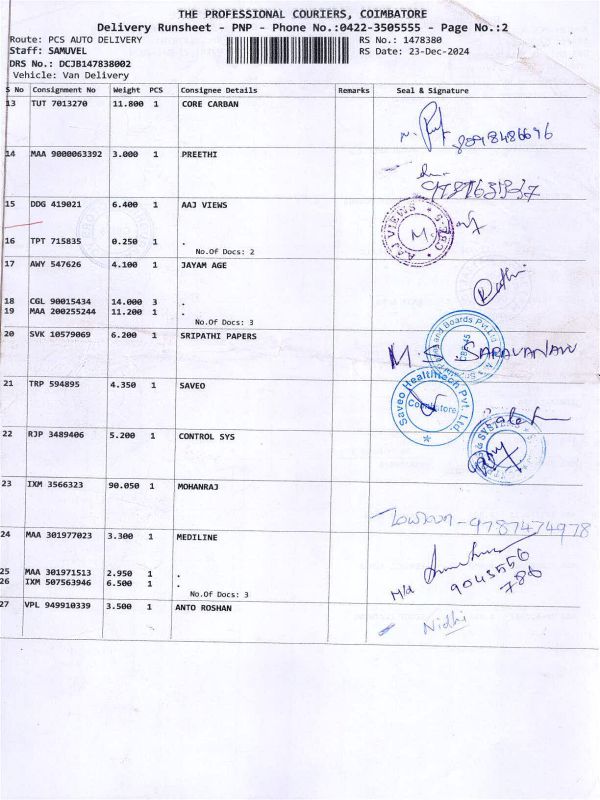 THE PROFESSIONAL COURIERS, COIMBATORE
Delivery Runsheet - PNP - Phone No.:0422-3505555 - Page No.:2
Route: PCS AUTO DELIVERY RS No.: 1478380
Staff: SAMUVEL RS Date: 23-Dec-2024
DRS No.: DCJB147838002
Vehicle: Van Delivery
S No Consignment No Weight PCS Consignee Details Remarks Seal & Signature
13 TUT 7013270 11.800 1 CORE CARBAN
14 MAA 9000063392 3.000 1 PREETHI
15 DDG 419021 6.400 1 AAJ VIEWS
AAJ VIEWS
16 TPT 715835 0.250 1 .
No.Of Docs: 2
17 AWY 547626 4.100 1 JAYAM AGE
18 CGL 90015434 14.000 3 .
19 MAA 200255244 11.200 1 .
No.Of Docs: 3
20 SVK 10579069 6.200 1 SRIPATHI PAPERS
and Boards Pvt Ltd
M.S. SARAVANAN
21 TRP 594895 4.350 1 SAVEO
Saveo Healthtech Pvt. Ltd.
Coimbatore
22 RJP 3489406 5.200 1 CONTROL SYS
23 IXM 3566323 90.050 1 MOHANRAJ
9787474978
24 MAA 301977023 3.300 1 MEDILINE
M/d 9043556
786
25 MAA 301971513 2.950 1 .
26 IXM 507563946 6.500 1 .
No.Of Docs: 3
27 VPL 949910339 3.500 1 ANTO ROSHAN
Nidhi